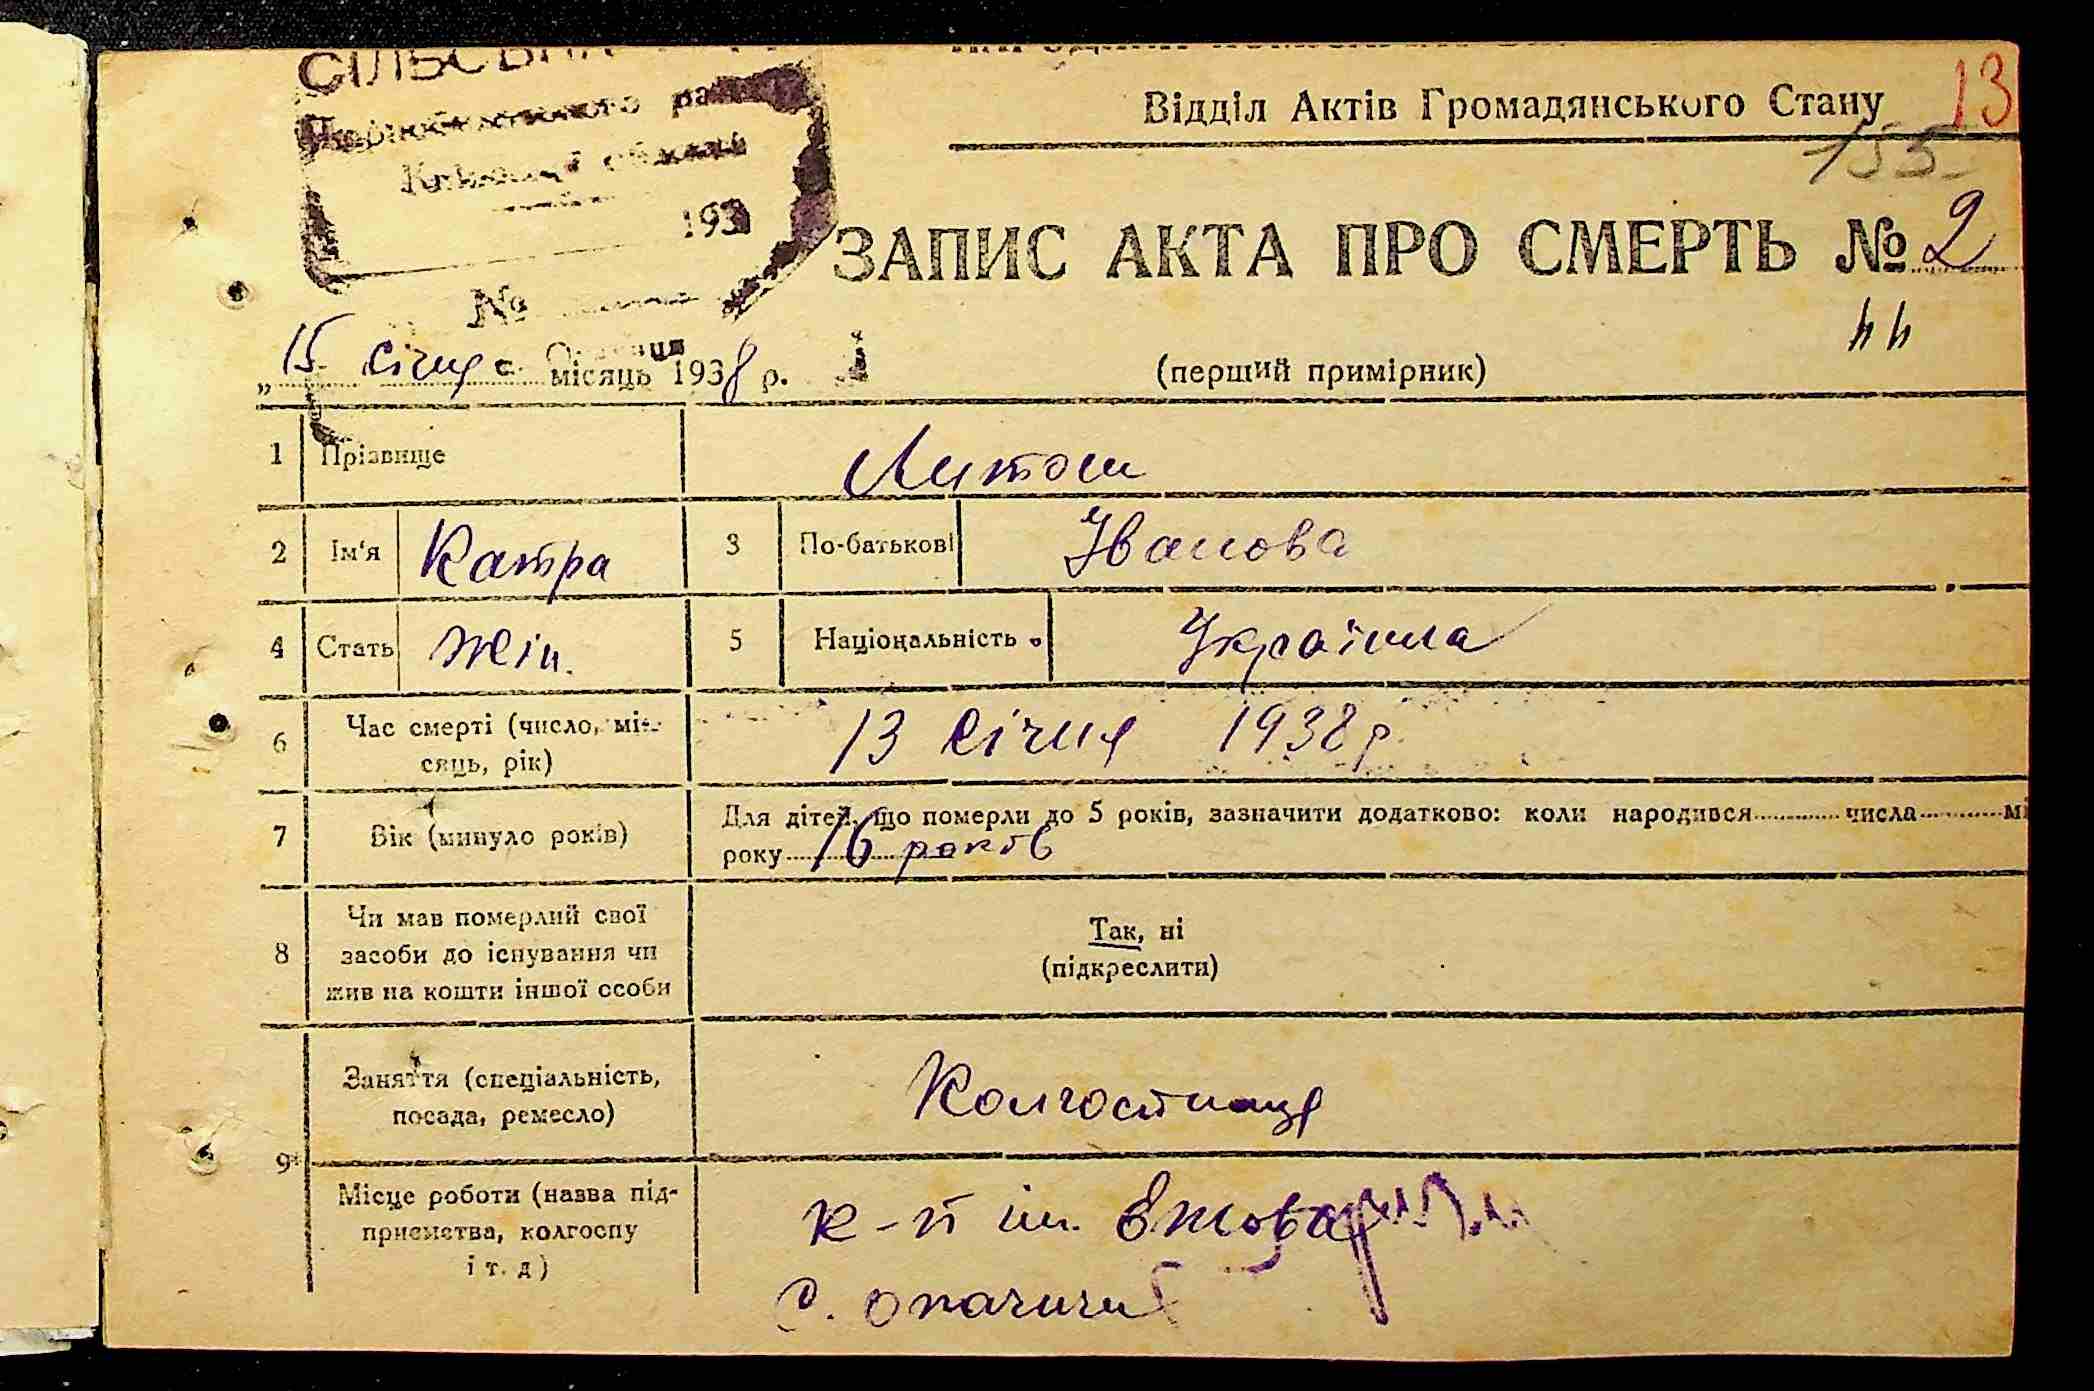 СІЛЬСЬКА
Чорнобильського району
Київської області
193
№
Відділ Актів Громадянського Стану
13
155
ЗАПИС АКТА ПРО СМЕРТЬ № 2
„15 січня місяць 1938 р.
(перший примірник)
1 Прізвище Литош
2 Ім'я Катра 3 По-батькові Іванова
4 Стать жін. 5 Національність Українка
6 Час смерті (число, мі-
сяць, рік)
13 Січня 1938 р.
7 Вік (минуло років)
Для дітей, що померли до 5 років, зазначити додатково: коли народився числа мі
року 16 років
8 Чи мав померлий свої
засоби до існування чи
жив на кошти іншої особи
Так, ні
(підкреслити)
9 Заняття (спеціальність,
посада, ремесло)
Колгоспниця
Місце роботи (назва під-
приємства, колгоспу
і т. д)
к-п ім. Єжова
с. опачичі